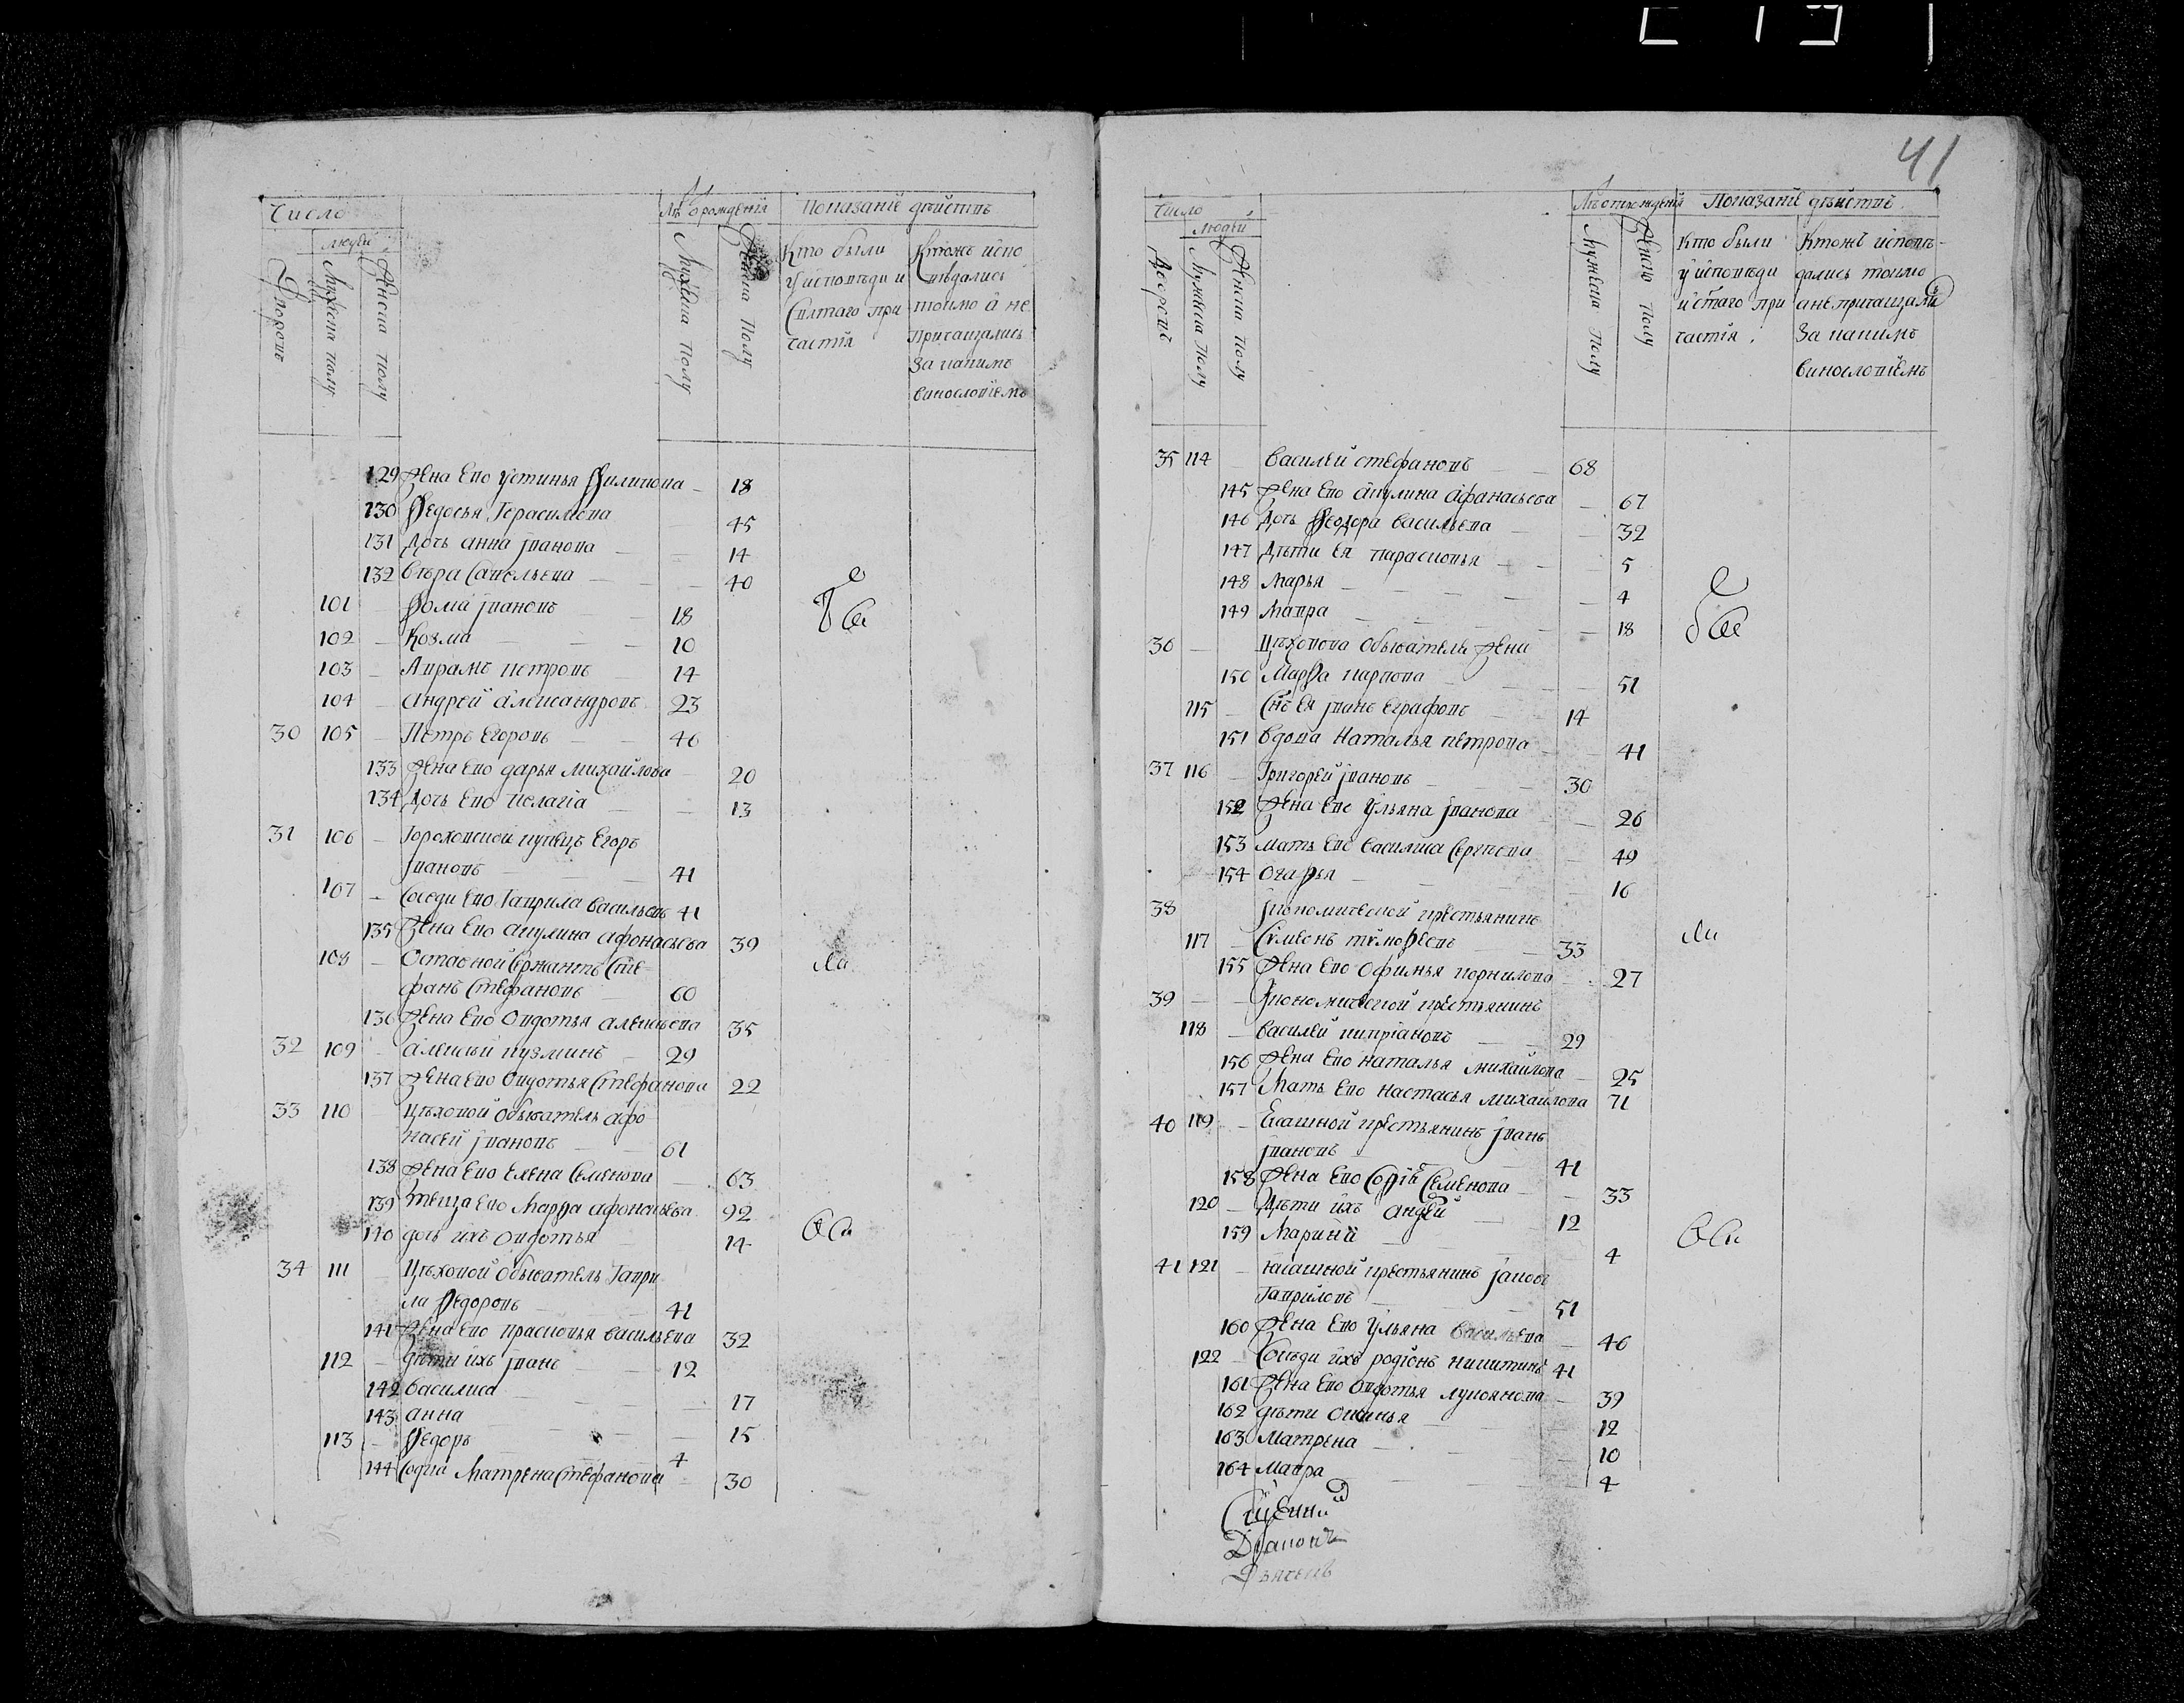 41
Число
Лѣ ѿ рождения
Показание дѣйствъ
людей
Дворовъ
Мужеска полу
Женска полу
Мужеска полу
Женска полу
Кто были
у исповѣди и
Святаго при
частия
Ктожъ испо
вѣдались
токмо а не
Причащались
За какимъ
винословиемъ
129 Жена Ево Устинья Филипова 18
130 Федосья Герасимова 45
131 Дочь анна Iванова 14
132 Вѣра Савельева 40
101 Фома Iвановъ 18
102 Козма 10
103 Аврамъ петровъ 14
104 андрей александровъ 23
30 105 Петръ Егоровъ 46
133 Жена Ево дарья михайлова 20
134 Дочь Ево пелагiа 13
31 106 Гороховской купецъ Егоръ
Iвановъ 41
107 Соседи Ево Гаврила Васильевъ 41
135 Жена Ево акулина афонасьева 39
108 Отставной Сержантъ Сте-
фанъ Стефановъ 60
136 Жена Ево Овдотья алексѣева 35
32 109 алексѣй кузминъ 29
137 Жена Ево Овдотья Стефанова 22
33 110 Цѣховой Обыватель афо
насей Iвановъ 61
138 Жена Ево Елена Семенова 63
139 Теща Ево Марфа афонасьева 92
140 дочь ихъ овдотья 14
34 111 Цѣховой Обыватель Гаври
ла Федоровъ 41
141 Жена Ево Прасковья Васильева 32
112 дѣти ихъ Iванъ 12
142 Василиса 17
143 анна 15
113 Федоръ 4
144 Матрена Стефанова 30
Число
Лѣ ѿ рождений
Показание дѣйствие
людей
Дворовъ
Мужеска полу
Женска полу
Мужеска полу
Женска полу
Кто были
у исповѣди
и Стаго при
частия
Ктожъ исповѣ-
дались токмо
а не причащались
За какимъ
винословиемъ
35 114 Василей стефановъ 68
145 Жена Ево акулина афанасьева 67
146 Дочь Феодора Васильева 32
147 Дѣти Ея парасковья 5
148 Марья 4
149 Мавра 18
36 Цѣховова Обывателя Жена
150 Марфа карпова 51
115 Снъ Ея Iванъ Еграфовъ 14
151 Вдова Наталья петрова 41
37 116 Григорей Iвановъ 30
152 Жена Ево Ульяна Iванова 26
153 мать Ево Василиса Сергѣева 49
154 Огафья 16
38 Iкономической крестьянинъ
117 Сѵмеонъ тимофеевъ 33
155 Жена Ево Офимья корнилова 27
39 Iкономической крестьянинъ
118 Василей киприановъ 29
156 Жена Ево Наталья михайлова 25
157 Мать Ево Настасья михайлова 71
40 119 Ясашной крестьянинъ Iванъ
Iвановъ 41
158 Жена Ево Софiя Семенова 33
120 Дѣти ихъ андрей 12
159 Марина 4
41 121 Ясашной крестьянинъ Iаковъ
Гавриловъ 51
160 Жена Ево Ульяна Васильева 46
122 Сосѣди ихъ родионъ никитинъ 41
161 Жена Ево Овдотья лукоянова 39
162 дѣти 12
163 Матрена 10
164 Мавра 4
Священник
Диаконъ
Дьячекъ